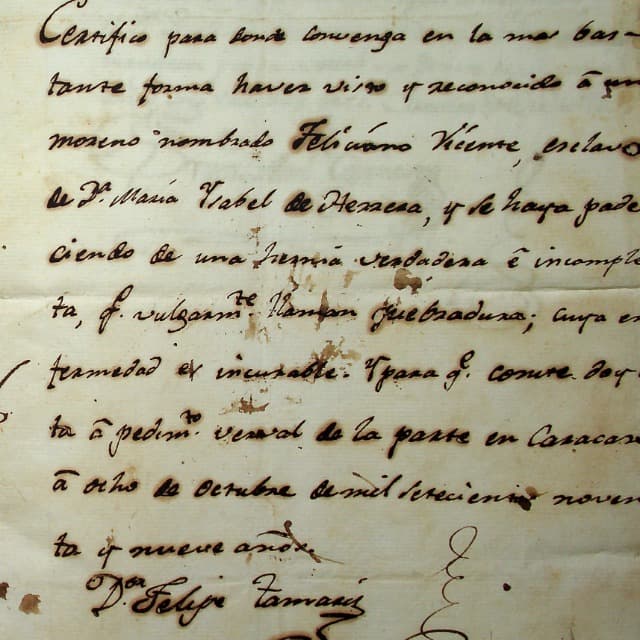 Certifico para donde convenga en la mas bas-
tante forma haver visto y reconocido â un
moreno nombrado Feliciano Vicente, esclavo
de Dª. María Ysabel de Herrera, y se haya pade
ciendo de una hernia verdadera ê incomple
ta, q.ᵉ vulgarm.ᵗᵉ llaman quebradura; cuya en
fermedad es incurable. Y para q.ᵉ conste doy es
ta â pedim.ᵗᵒ verval de la parte en Caracas
â ocho de octubre de mil setecientos noven
ta y nueve años.
D.ᵒʳ Felipe Tamariz